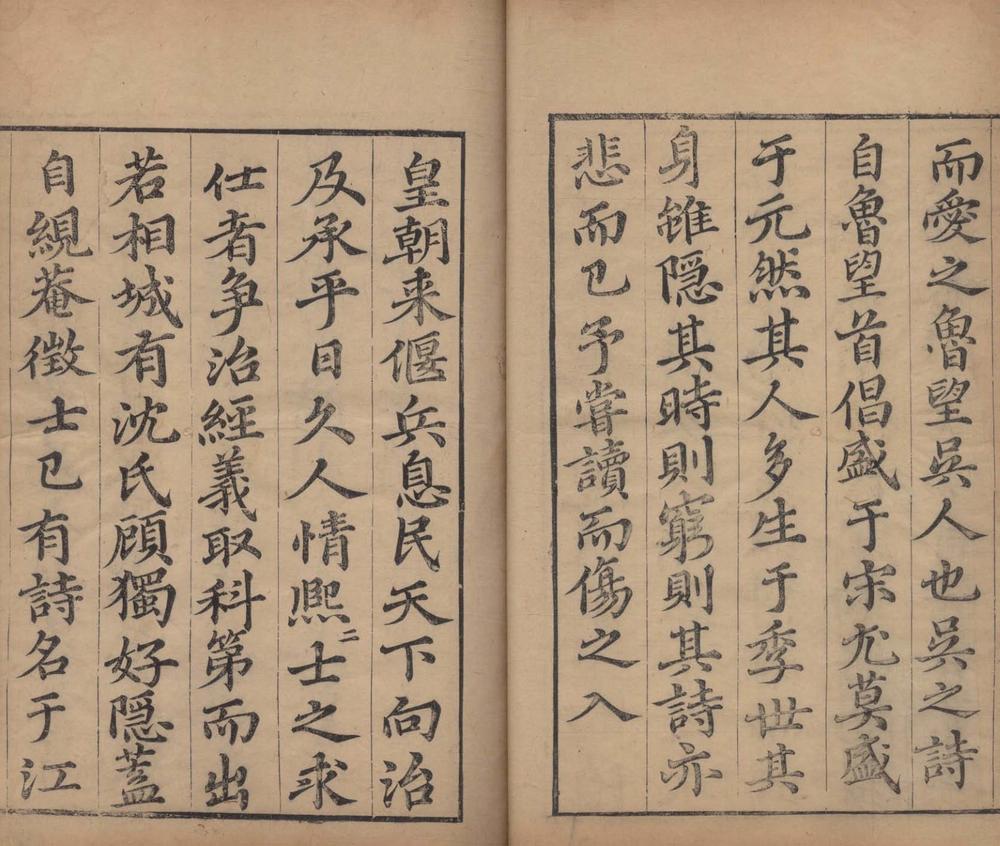 而愛之魯望吳人也吳之詩
自魯望首倡盛于宋尤莫盛
于元然其人多生于季世其
身雖隠其時則窮則其詩亦
悲而已予嘗讀而傷之入
皇朝来偃兵息民天下向治
及承平日久人情熈〻士之求
仕者争治經義取科第而出
若相城有沈氏顧獨好隠蓋
自繭菴徴士已有詩名于江